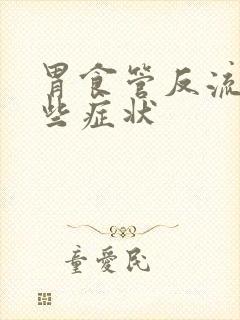 胃食管反流
些症状
童爱民